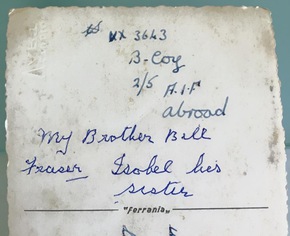 VX 3643
B-Coy
2/5 A.I.F
abroad
My Brother Bill
Fraser Isobel his
sister
"Ferrania"